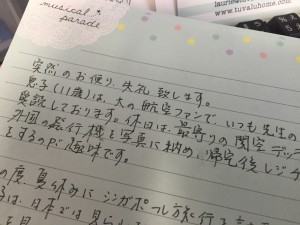 musical parade
laurie
www.tuvaluhome.com
突然のお便り、失礼致します。
息子(11歳)は、大の航空ファンで、いつも先生の
愛読しております。休日は、最寄りの関空デッ
外国の飛行機を写真に納め、帰宅後レジ
をするのが趣味です。
の度、夏休みにシンガポール旅行
は、日本では見ら